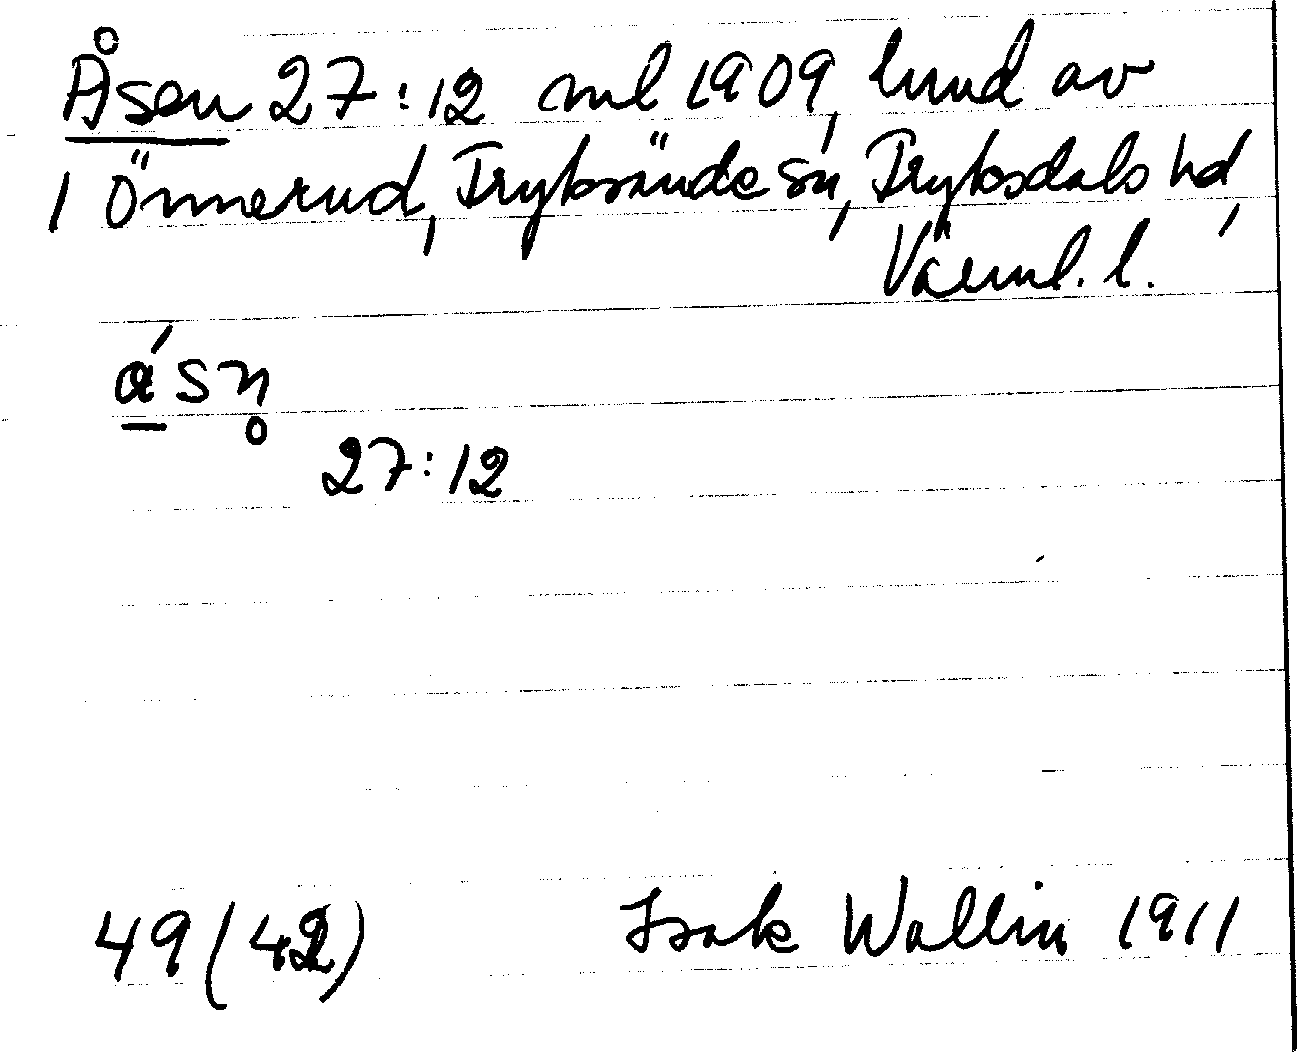 Åsen 27:12 enl 1909, hmd av
1 Önnerud, Fryksände sn, Fryksdals hd,
Värml. l.
ásn̥
27:12
49(42)
Isak Wallin 1911